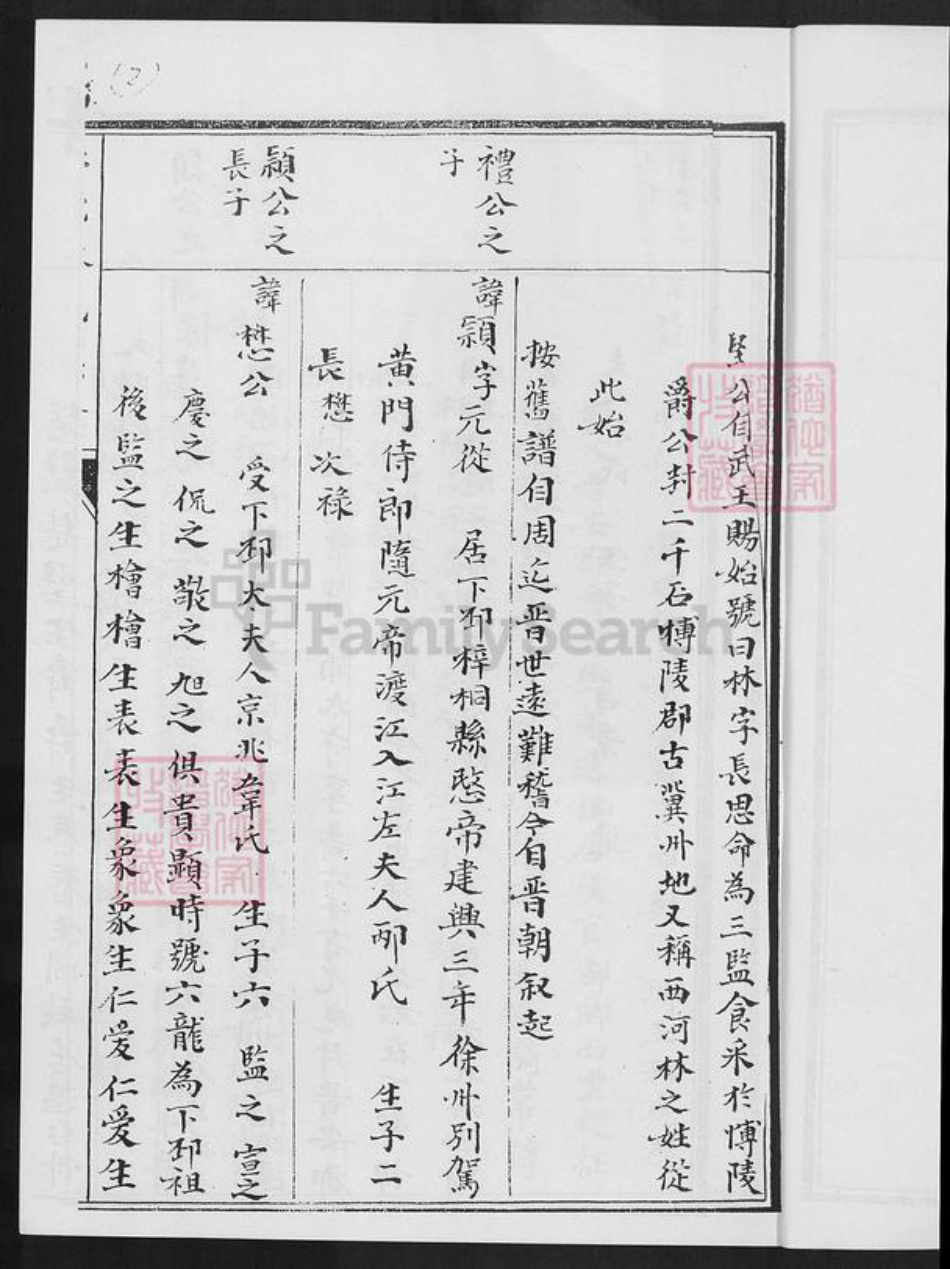 (2)
堅公自武王賜始號曰林字長思命為三監食采於愽陵
爵公封二千石愽陵郡古冀州地又稱西河林之姓從
此始
按舊譜自周迄晋世遠難稽今自晋朝叙起
禮公之
子
諱潁字元從 居下邳梓桐縣愍帝建興三年徐州別駕
黄門侍郎隨元帝渡江入江左夫人邴氏 生子二
長懋次祿
潁公之
長子
諱懋公 受下邳太夫人京兆韋氏 生子六 監之 宣之
慶之 侃之 敬之 旭之 俱貴顯時號六龍為下邳祖
後監之生檜檜生表表生象象生仁爱仁爱生
FamilySearch